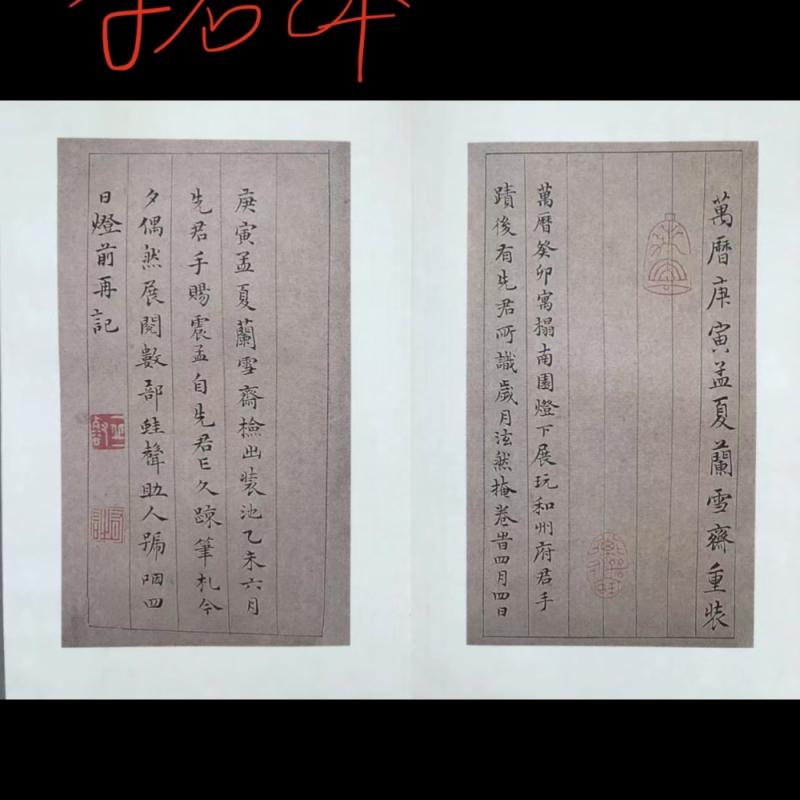 萬曆庚寅孟夏蘭雪齋重裝
萬曆癸卯寓搨南園燈下展玩和州府君手
蹟後有先君所識歲月泫然掩卷旹四月四日
庚寅孟夏蘭雪齋檢出裝池乙未六月
先君手賜震孟自先君亡久踈筆札今
夕偶然展閱數部蛙聲助人號咽四
日燈前再記